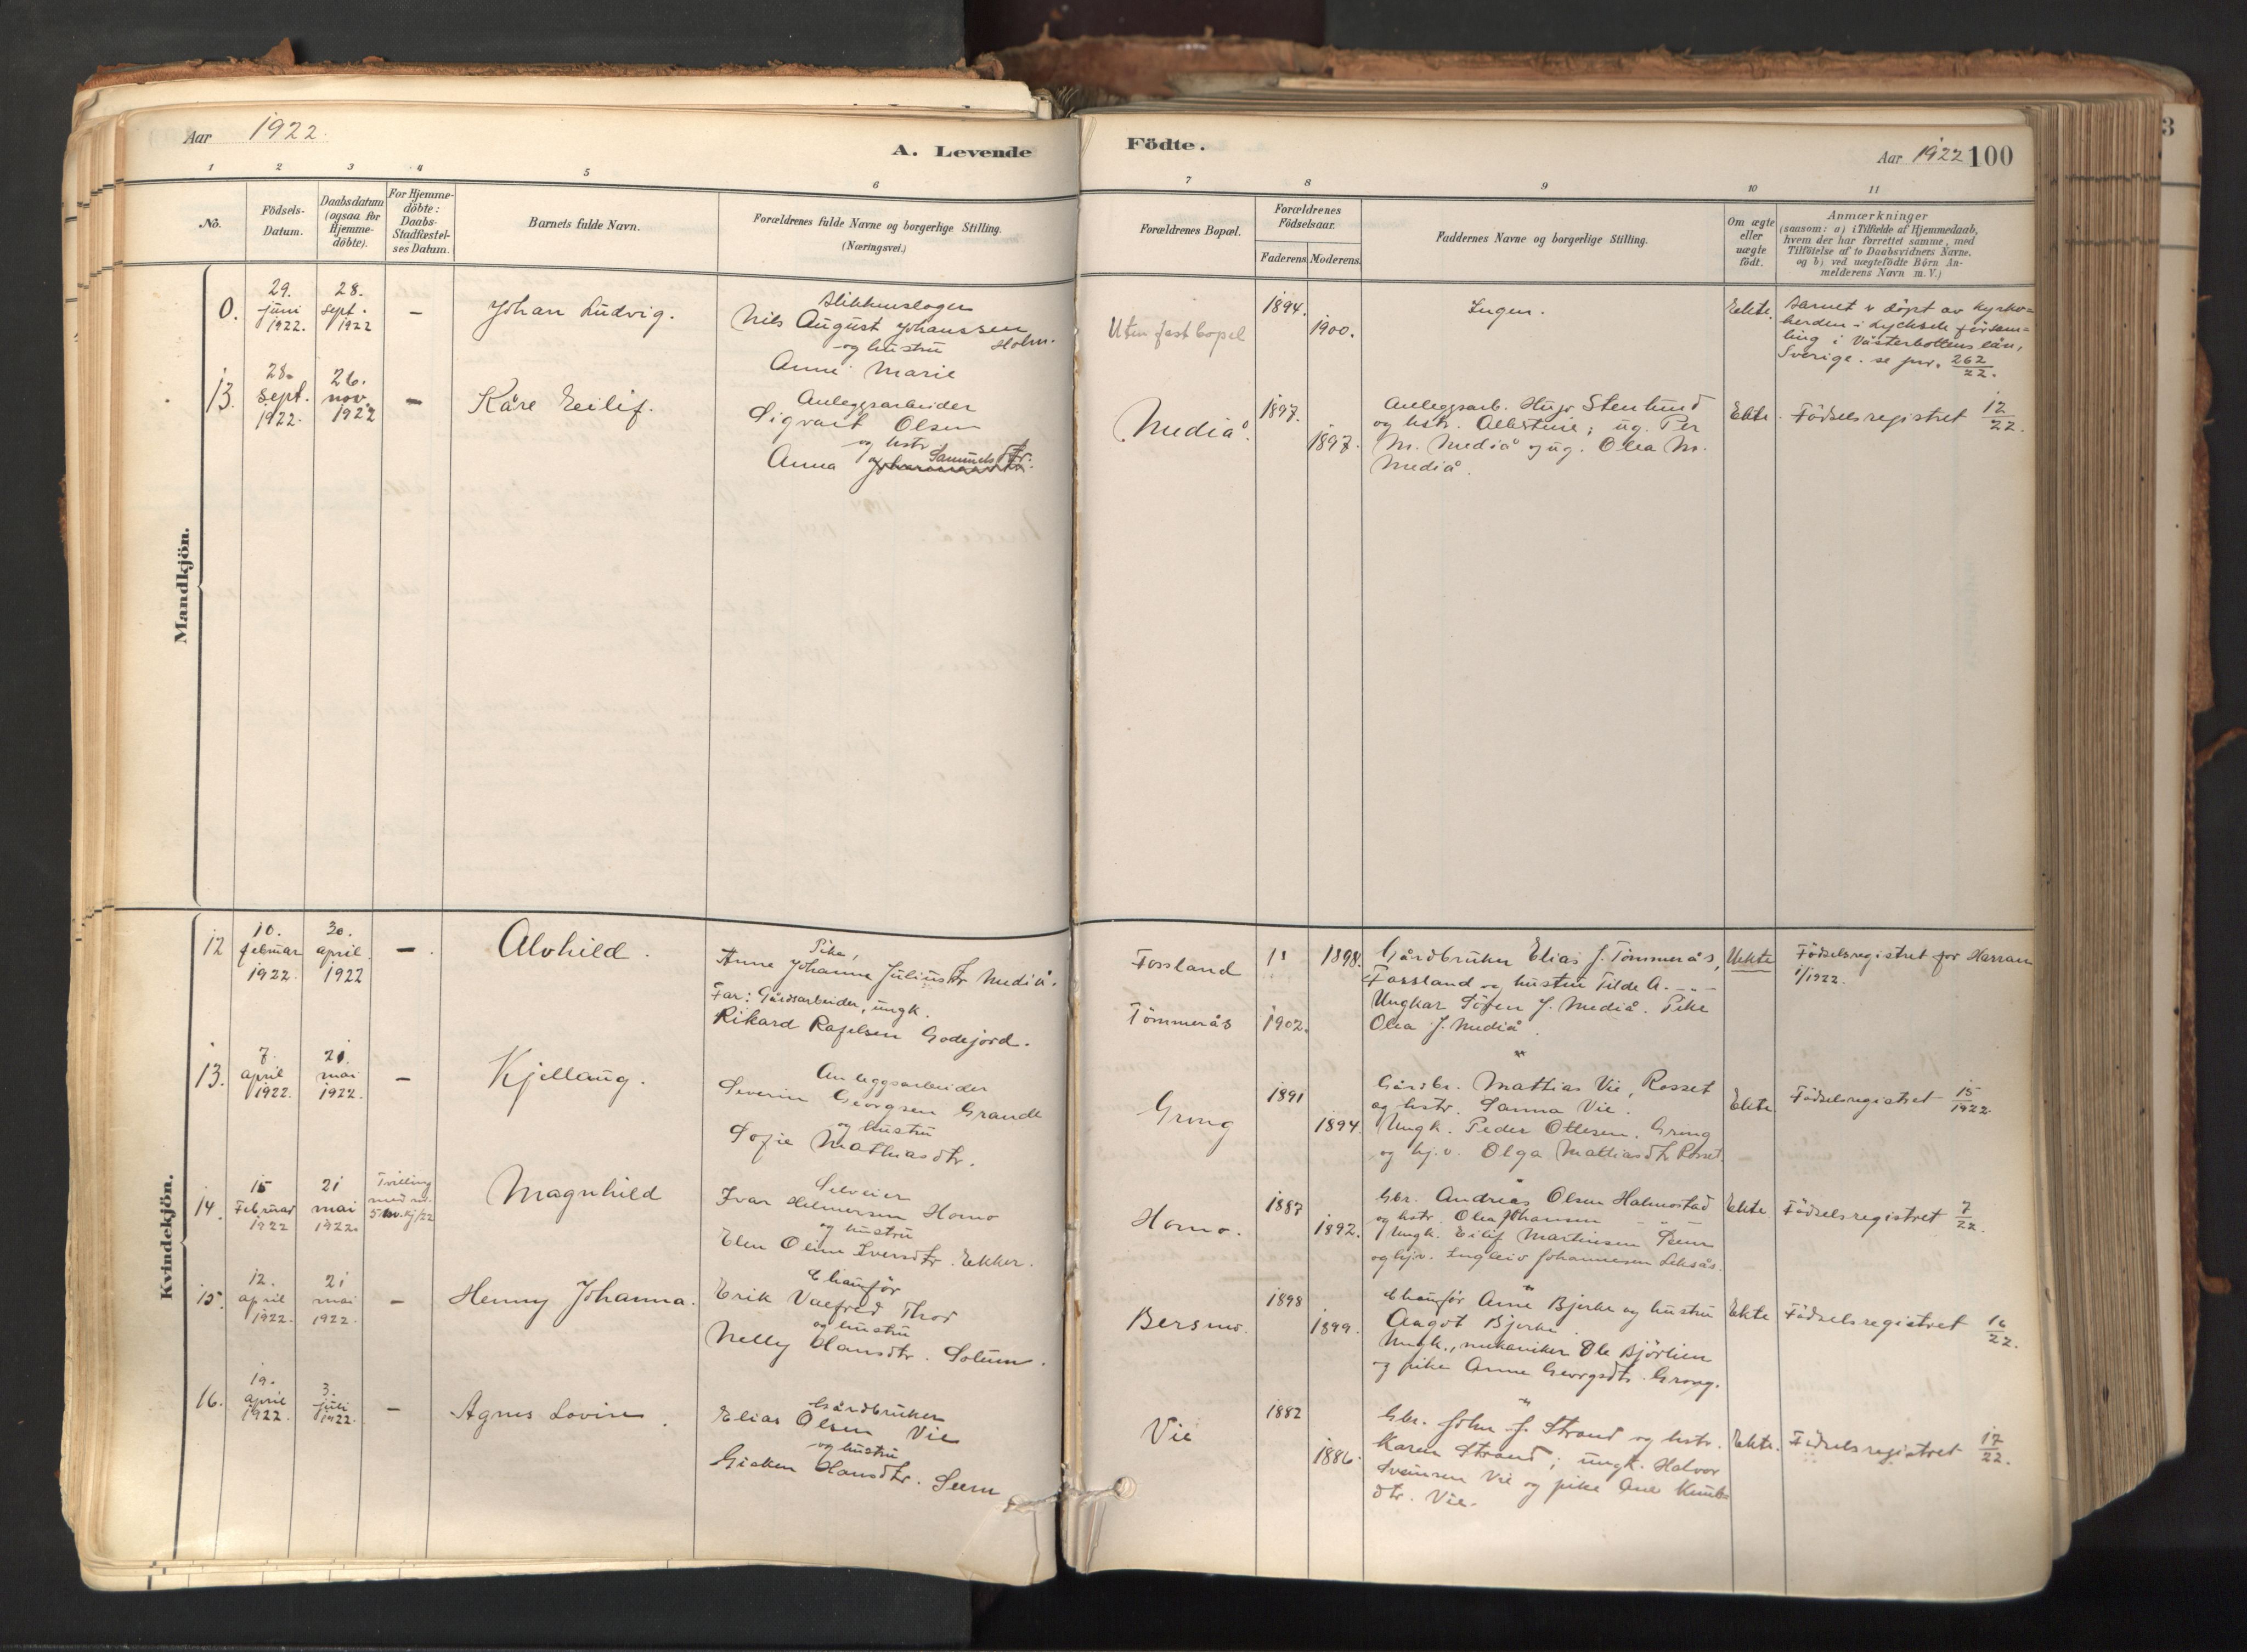 Aar 1922.
A. Levende
Födte.
Aar 1922 100
1 2 3 4 5 6 7 8 9 10 11
No.
Födsels-
Datum.
Daabsdatum
(ogsaa for
Hjemme-
döbte).
For Hjemme-
döbte:
Daabs-
Stadfæstel-
ses Datum.
Barnets fulde Navn.
Forældrenes fulde Navne og borgerlige Stilling.
(Næringsvei.)
Forældrenes Bopæl.
Forældrenes
Födselsaar.
Faderens Moderens.
Faddernes Navne og borgerlige Stilling.
Om ægte
eller
uægte
födt.
Anmærkninger
(saasom: a) i Tilfælde af Hjemmedaab,
hvem der har forrettet samme, med
Tilföielse af to Daabsvidners Navne.
og b) ved uægtefödte Börn An-
melderens Navn m. V.)
Mandkjön.
0.
29.
juni
1922.
28.
sept.
1922
–
Johan Ludvig.
Blikkenslager
Nils August Johanssen
og hustru Holm.
Anne Marie
Uten fast bopel
1894.
1900.
Ingen.
Ekte.
Barnet er döpt av kyrko-
herden i Lycksele försam-
ling i Västerbottens län,
Sverige. se jnr. 262/22.
13.
28.
sept.
1922.
26.
nov.
1922
–
Kåre Eilif.
Anleggsarbeider
Sigvart Olsen
og hstr.
Anna Samuelsdtr.
Mediå.
1897.
1897.
Anleggsarb. Hugo Stenlund
og hstr. Albertine; ug. Per
M. Mediå og ug. Olea M.
Mediå.
Ekte.
Födselsregistret 12/22.
Kvindekjön.
12
10.
februar
1922.
30.
april
1922
–
Alvhild.
Pike,
Anne Johanna Juliusdtr Mediå.
Far: Gårdsarbeider, ungk.
Rikard Rafelsen Godejord.
Fossland
Tömmerås
1898.
1902.
Gårdbruker Elias J. Tömmerås,
Fossland og hustru Tilde A. - " -
Ungkar Sören J. Mediå. Pike
Olea J. Mediå.
Uekte
Födselsregistret for Harran
1/1922.
13.
7.
april
1922.
21.
mai
1922.
–
Kjellaug.
Anleggsarbeider
Severin Georgsen Grande
og hustru
Sofie Mathiasdtr.
Grong
1891
1894.
Gårdbr. Mattias Vie, Rosset
og hstr. Sanna Vie.
Ungk. Peder Ottesen. Grong
og hj.v. Olga Mattiasdtr Rosset.
Ekte
Födselsregistret 15/1922.
14.
15
Februar
1922
21
mai
1922.
Tvilling
med nr.
Magnhild
Selveier
Ivar Helmersen Homo
og hustru
Elen Oline Iversdtr. Ekker.
Homo.
1887
1892.
Gbr. Andreas Olsen Halmostad
og hstr. Olea Johansen
Ungk. Eilif Martinsen
og hjv. Ingleiv Johannesen Leksås.
Ekte.
Födselsregistret 7/22.
15.
12.
april
1922.
21
mai
1922.
–
Henny Johanna.
Chauför
Erik Valfred Thor
og hustru
Nelly Hansdtr. Solum.
Bersmo.
1898
1899.
Chauför Arne Bjerke og hustru
Aagot Bjerke.
Ungk., mekaniker Ole Björlien
og pike Anne Georgsdtr. Grong.
Ekte
Födselsregistret 16/22.
16.
19.
april
1922.
3.
juli
1922.
–
Agnes Lovise.
Gårdbruker
Elias Olsen Vie
og hustru
Gisken Hansdtr. Seem
Vie
1882
1886.
Gbr. John J. Strand og hstr.
Karen Strand; ungk. Halvor
Sveinsen Vie og pike Ane Knuts-
dtr. Vie.
Ekte.
Födselsregistret 17/22.
3